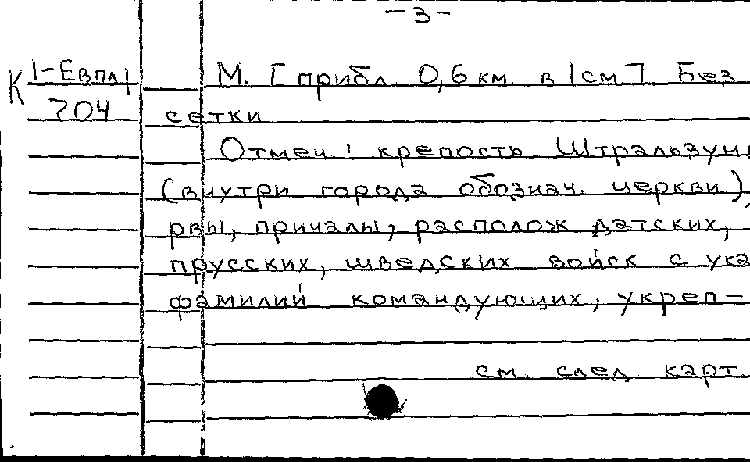 -3-
К 1-Евпл
704
М. [прибл. 0,6 км в 1см]. Без
сетки
Отмеч.: крепость Штральзун
(внутри города обознач. церкви),
рвы, причалы, располож датских,
прусских, шведских войск с ука
фамилий командующих, укреп-
см. след карт.